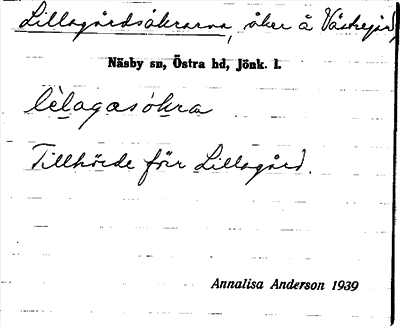 Lillagårdsåkrarna, åker å Västregård,
Näsby sn, Östra hd, Jönk. l.
lèlagasòkra
Tillhörde förr Lillagård.
Annalisa Anderson 1939